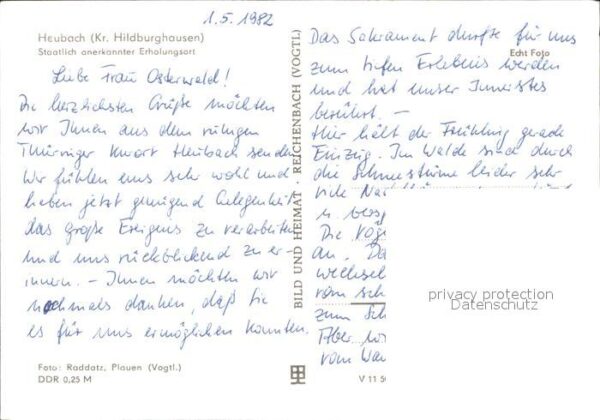 1.5.1982
Heubach (Kr. Hildburghausen)
Staatlich anerkannter Erholungsort
Liebe Frau Osterwald!
Die herzlichsten Grüße möchten
wir Ihnen aus dem ruhigen
Thüringer Kurort Heubach senden
Wir fühlen uns sehr wohl und
haben jetzt genügend Gelegenheit
das große Ereignis zu verarbeiten
und uns rückblickend zu er-
innern. – Ihnen möchten wir
nochmals danken, daß Sie
es für uns ermöglichen konnten.
Foto: Raddatz, Plauen (Vogtl.)
DDR 0,25 M
BILD UND HEIMAT · REICHENBACH (VOGTL)
Das Sakrament durfte für uns
Echt Foto
zum tiefen Erlebnis werden
und hat unser Innerstes
berührt. –
Hier hält der Frühling gerade
Einzug. Im Walde sind durch
die Schneestürme leider sehr
viele
u.
Die
an. Da
wechsel
vom
zum
Aber
vom
V 11 50
privacy protection
Datenschutz